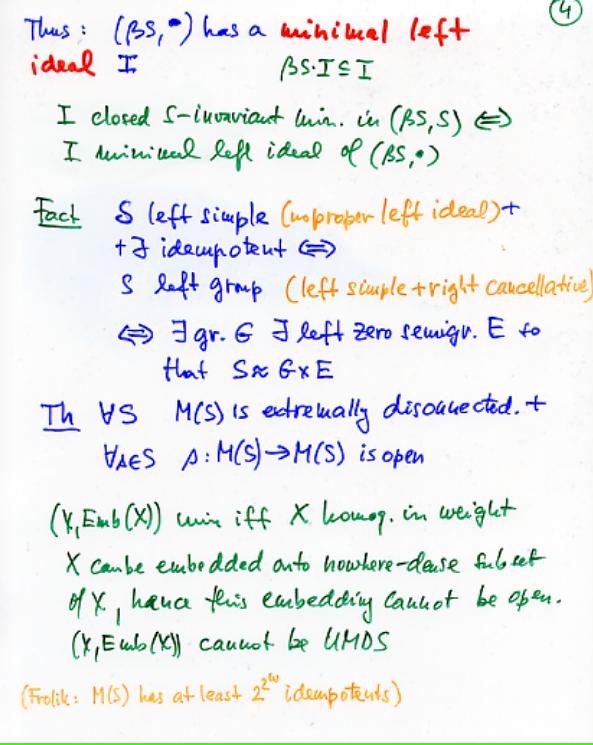 ④
Thus : (βS,•) has a minimal left
ideal I βS·I⊆I
I closed S-invariant min. in (βS,S) ⟺
I minimal left ideal of (βS,•)
Fact S left simple (no proper left ideal)+
+∃ idempotent ⟺
S left group (left simple+right cancellative)
⟺ ∃ gr. G ∃ left zero semigr. E so
that S≈G×E
Th ∀S M(S) is extremally disconnected. +
∀s∈S s: M(S)→M(S) is open
(X,Emb(X)) min iff X homog. in weight
X can be embedded onto nowhere-dense subset
of X, hance this embedding cannot be open.
(X,Emb(X)) cannot be UMDS
(Frolik: M(S) has at least 2^{2^ω} idempotents)